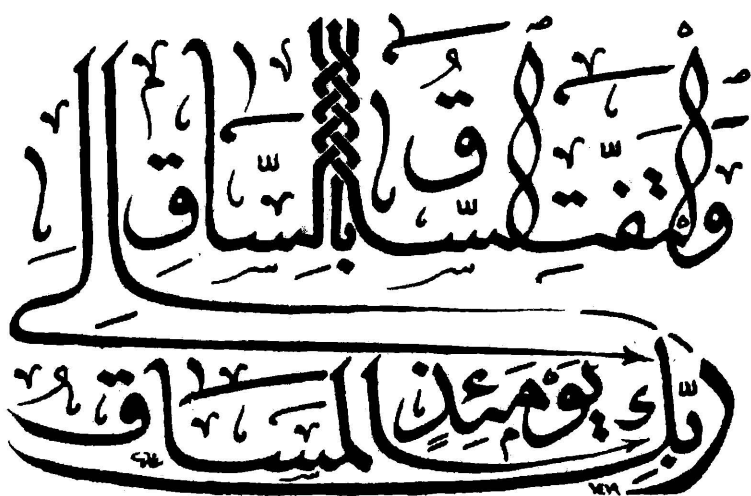 وَالْتَفَّتِ السَّاقُ بِالسَّاقِ اِلٰى
رَبِّكَ يَوْمَئِذٍ الْمَسَاقُ